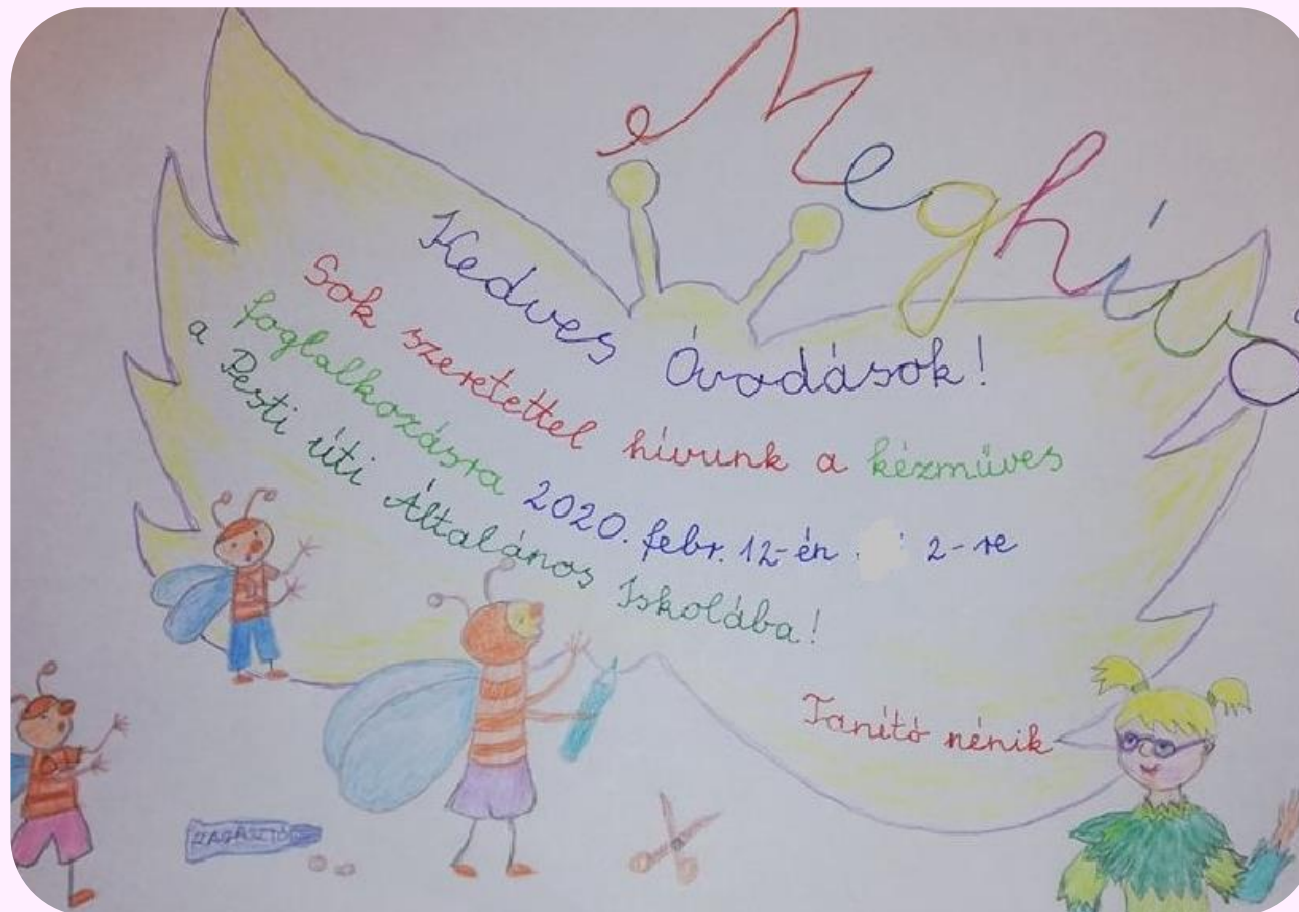 Meghívó
Kedves Óvodások!
Sok szeretettel hívunk a kézműves
foglalkozásra 2020. febr. 12-én 2-re
a Pesti úti Általános Iskolába!
Tanító nénik
RAGASZTÓ